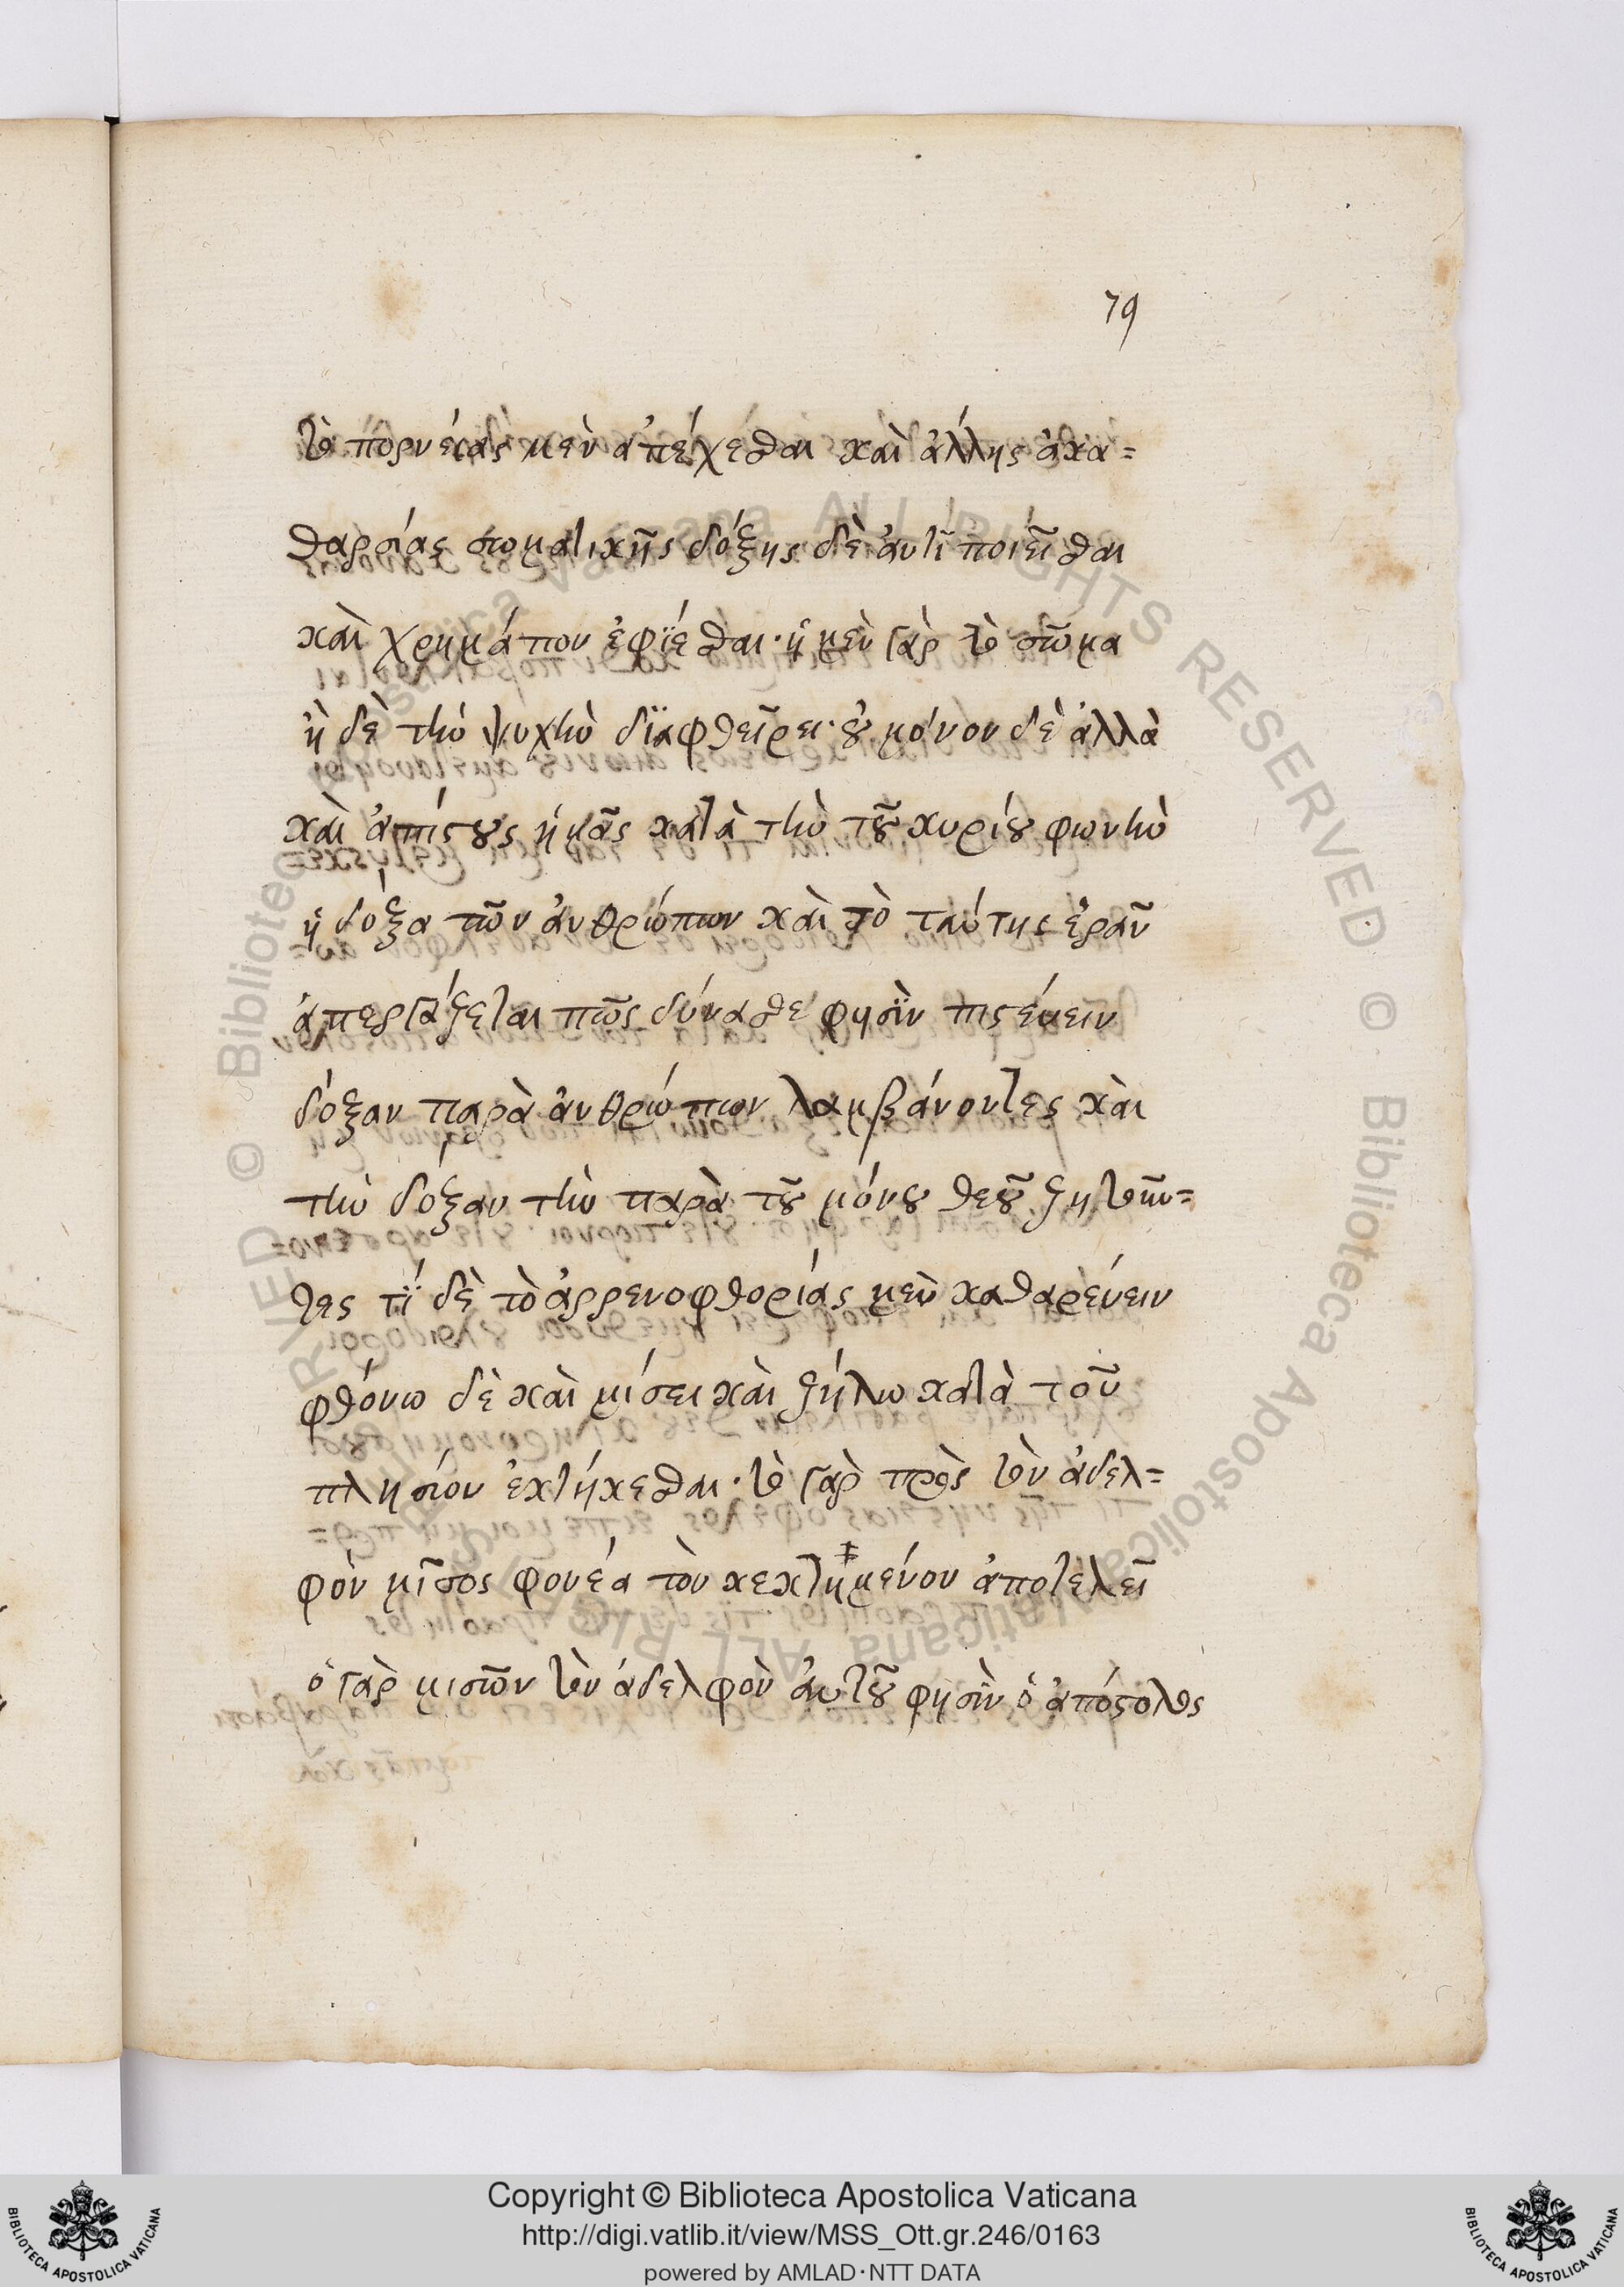 79
τὸ πορνείας μὲν ἀπέχεσθαι καὶ ἄλλης ἀκα=
θαρσίας σωματικῆς δόξης δὲ ἀντιποιεῖσθαι
καὶ χρημάτων ἐφΐεσθαι· ἡ μὲν γὰρ τὸ σῶμα
ἡ δὲ τὴν ψυχὴν δϊαφθείρει· οὐ μόνον δὲ ἀλλὰ
καὶ ἀπίστους ἡμᾶς κατὰ τὴν τοῦ κυρίου φωνὴν
ἡ δόξα τῶν ἀνθρώπων καὶ τὸ ταύτης ἐρᾶν
ἀπεργάζεται πῶς δύνασθε φησὶν πιστεύειν
δόξαν παρὰ ἀνθρώπων λαμβάνοντες καὶ
τὴν δόξαν τὴν παρὰ τοῦ μόνου θεοῦ ζητοῦν=
τες τΐ δὲ τὸ ἀρρενοφθορίας μὲν καθαρεύειν
φθόνω δὲ καὶ μίσει καὶ ζήλω κατὰ τοῦ
πλησίον ἐκτήκεσθαι· τὸ γὰρ πρὸς τὸν ἀδελ=
φὸν μῖσος φονέα τὸν κεκτημένον ἀποτελεῖ
ὁ γὰρ μισῶν τὸν ἀδελφὸν αὐτοῦ φησὶν ὁ ἀπόστολος
© Biblioteca Apostolica Vaticana ALL RIGHTS RESERVED © Biblioteca Apostolica Vaticana ALL RIGHTS RESERVED
Copyright © Biblioteca Apostolica Vaticana
http://digi.vatlib.it/view/MSS_Ott.gr.246/0163
powered by AMLAD·NTT DATA
BIBLIOTECA APOSTOLICA VATICANA
BIBLIOTECA APOSTOLICA VATICANA